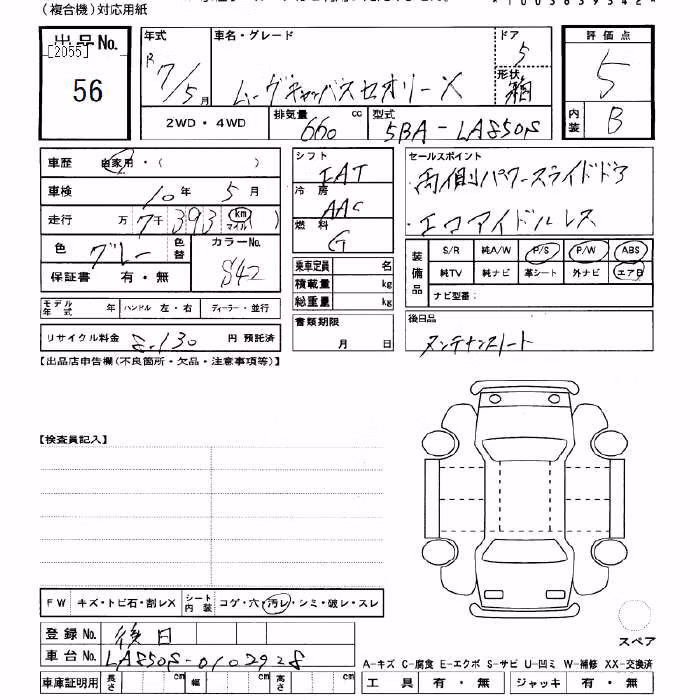 (複合機)対応用紙
出品No.
[2055]
56
年式
R 7/5月
車名・グレード
ムーヴキャンバスセオリーX
ドア
5
形状
箱
評価点
5
内装
B
2WD・4WD
排気量
660 cc
型式
5BA-LA850S
車歴 自家用・( )
車検 10年 5月
走行 万 7千393 km マイル )
色 グレー 色替 カラーNo. S42
保証書 有・無
シフト
FAT
冷房
AAC
燃料
G
乗車定員 名
積載量 kg
総重量 kg
セールスポイント
・両側パワースライドドア
・エコアイドルレス
装備品
S/R 純A/W P/S P/W ABS
純TV 純ナビ 革シート 外ナビ エアB
ナビ型番:
モデル年式 年 ハンドル 左・右 ディーラー・並行
書類期限
月 日
後日品
メンテナンスノート
リサイクル料金 8,130 円 預託済
【出品店申告欄(不良箇所・欠品・注意事項等)】
【検査員記入】
FW キズ・トビ石・割レX シート内装 コゲ・穴・汚レ・シミ・破レ・スレ
登録No. 後日
車台No. LA850S-0102928
車庫証明用 長さ cm 幅 cm 高さ cm
スペア
A-キズ C-腐食 E-エクボ S-サビ U-凹ミ W-補修 XX-交換済
工具 有・無 ジャッキ 有・無